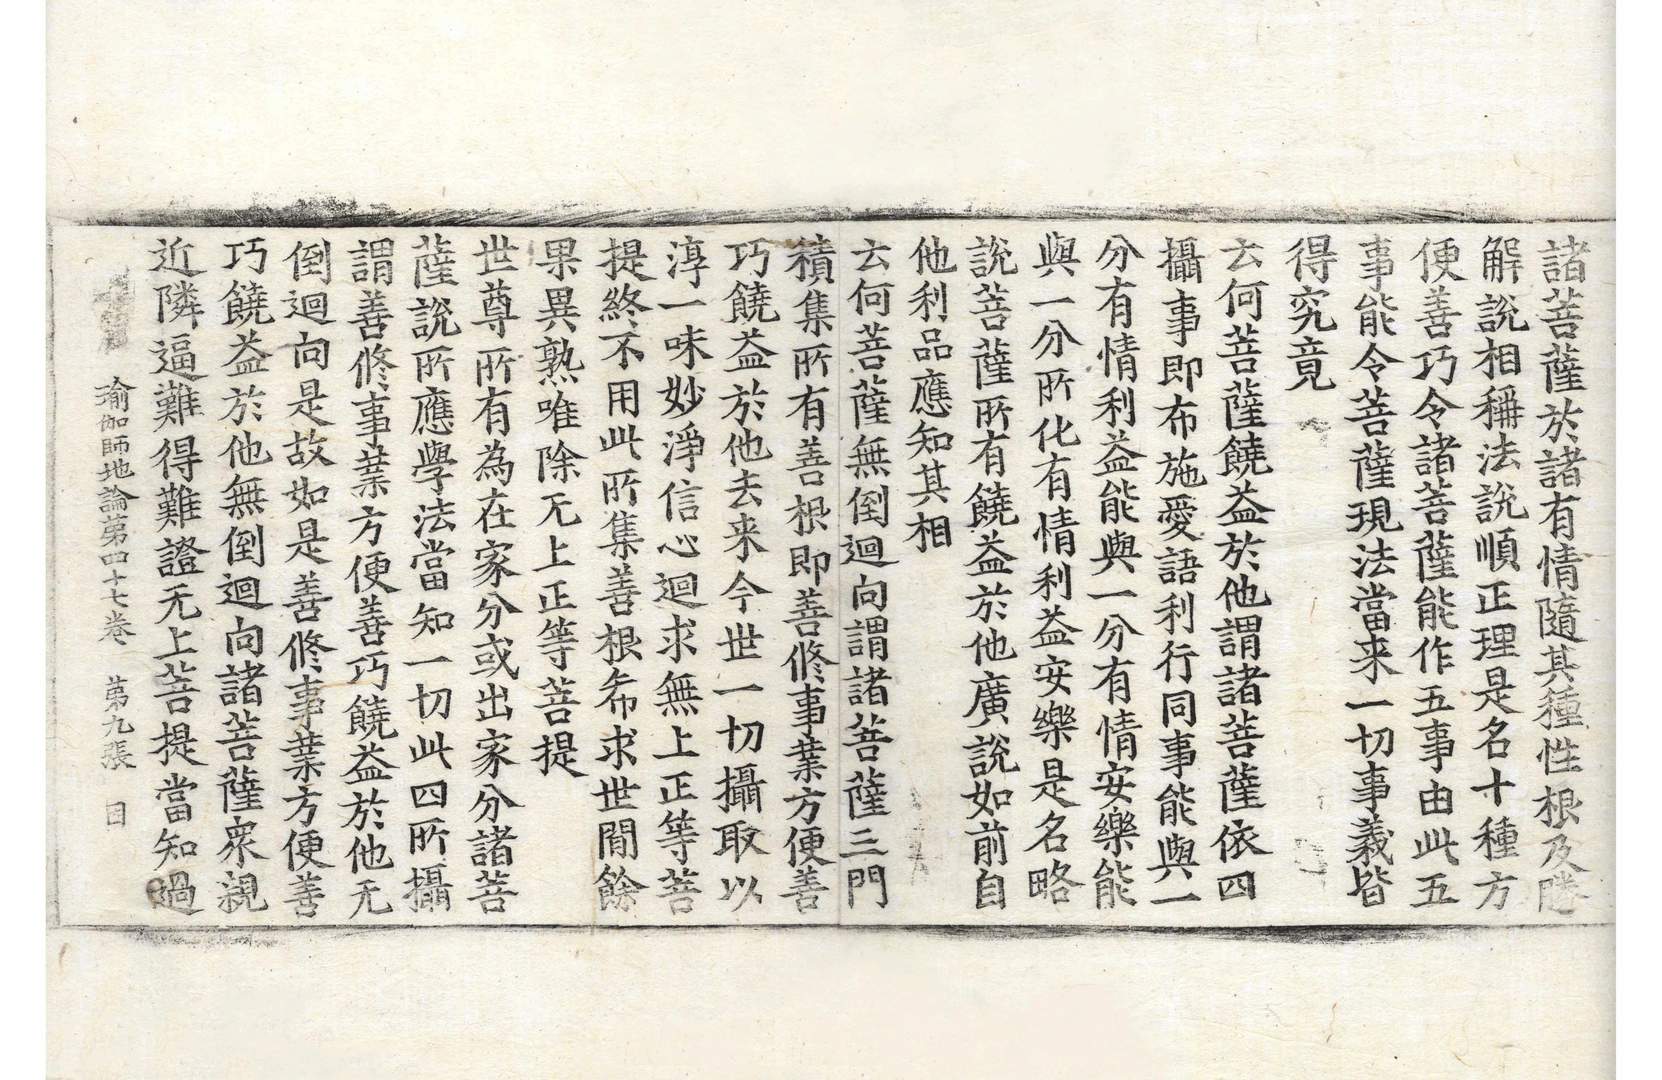 諸菩薩於諸有情隨其種性根及勝
解說相稱法說順正理是名十種方
便善巧令諸菩薩能作五事由此五
事能令菩薩現法當来一切事義皆
得究竟
云何菩薩饒益於他謂諸菩薩依四
攝事即布施愛語利行同事能與一
分有情利益能與一分有情安樂能
與一分所化有情利益安樂是名略
說菩薩所有饒益於他廣說如前自
他利品應知其相
云何菩薩無倒迴向謂諸菩薩三門
積集所有善根即善修事業方便善
巧饒益於他去来今世一切攝取以
淳一味妙淨信心迴求無上正等菩
提終不用此所集善根希求世間餘
果異熟唯除无上正等菩提
世尊所有為在家分或出家分諸菩
薩說所應學法當知一切此四所攝
謂善修事業方便善巧饒益於他无
倒迴向是故如是善修事業方便善
巧饒益於他無倒迴向諸菩薩衆親
近隣逼難得難證无上菩提當知過
瑜伽師地論第四十七卷 第九張